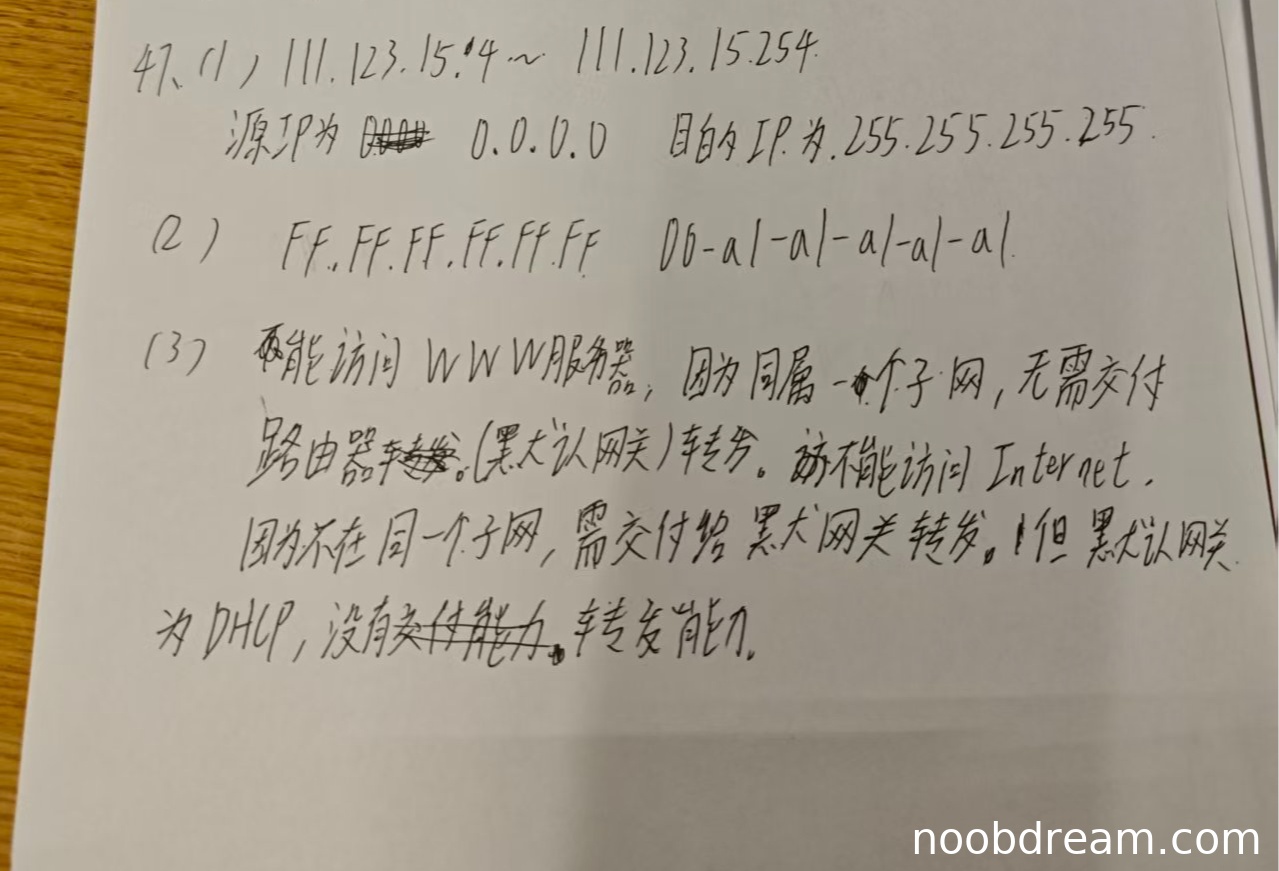 47、(1) 111.123.15.4 ~ 111.123.15.254.
源IP为 0.0.0.0 目的IP.为.255.255.255.255.
(2) FF.FF.FF.FF.FF.FF 00-a1-a1-a1-a1-a1.
(3) 能访问WWW服务器, 因为同属一个子网, 无需交付
路由器(默认网关)转发。不能访问Internet.
因为不在同一个子网, 需交付给默网关转发。但默认网关
为DHCP, 没有转发能力.
noobdream.com